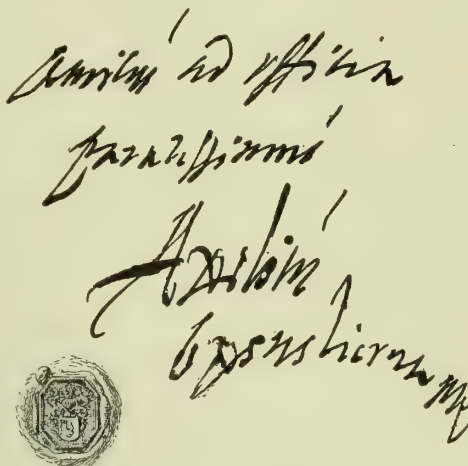 Amicus ad officia
paratissimus
Axelius
Oxenstierna mp